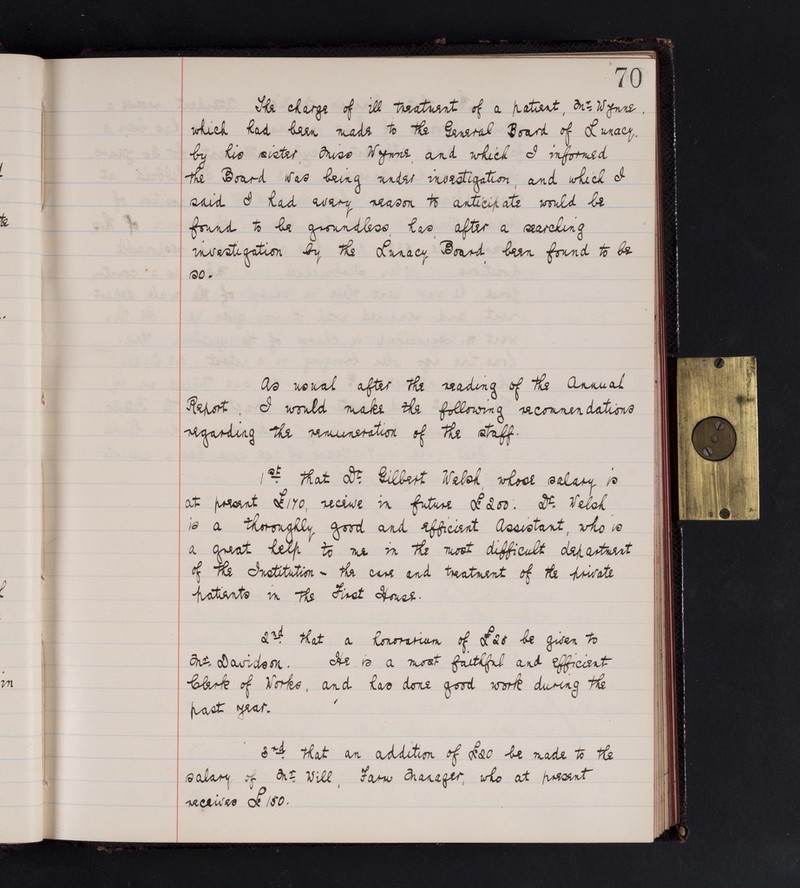 70
The charge of ill treatment of a patient, Mr. Wynne,
which had been made to the General Board of Lunacy,
by his sister, Miss Wynne, and which I informed
the Board was being under investigation, and which I
said I had every reason to anticipate would be
found to be groundless, has, after a searching
investigation by the Lunacy Board, been found to be
so.
As usual after the reading of the Annual
Report I would make the following recommendations
regarding the remuneration of the staff.
1st. That Dr. Gilbert Welsh, whose salary is
at present £170, receive in future £200. Dr. Welsh
is a thoroughly good and efficient Assistant, who is
a great help to me in the most difficult department
of the Institution - the care and treatment of the private
patients in the First House.
2nd. That a honorarium of £20 be given to
Mr. Davidson. He is a most faithful and efficient
Clerk of Works, and has done good work during the
past year.
3rd. That an addition of £20 be made to the
salary of Mr. Will, Farm Manager, who at present
receives £180.
in